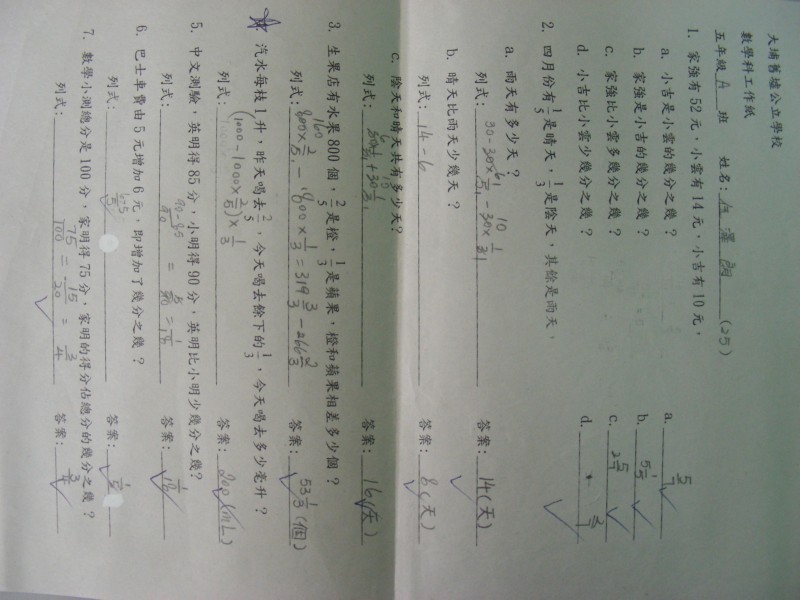 大埔舊墟公立學校
數學科工作紙
五年級 A 班 姓名: (25)
1. 家強有 52 元,小雲有 14 元,小吉有 10 元,
a. 小吉是小雲的幾分之幾? a. 5/7
b. 家強是小吉的幾分之幾? b. 5 1/5
c. 家強比小雲多幾分之幾? c. 2 5/7
d. 小吉比小雲少幾分之幾? d. 2/7
2. 四月份有 1/5 是晴天,1/3 是陰天,其餘是雨天,
a. 雨天有多少天?
列式: 30-30×1/5-30×1/3 答案: 14(天)
b. 晴天比雨天少幾天?
列式: 14-6 答案: 8(天)
c. 陰天和晴天共有多少天?
列式: 答案: 16(天)
3. 生果店有水果 800 個,2/5 是橙,1/3 是蘋果,橙和蘋果相差多少個?
列式: 800×2/5-800×1/3=319 3/3-266 2/3 答案: 53 1/3(個)
汽水每枝 1 升,昨天喝去 2/5,今天喝去餘下的 1/3,今天喝去多少毫升?
列式: (1000-1000×2/5)×1/3 答案: 200(mL)
5. 中文測驗,英明得 85 分,小明得 90 分,英明比小明少幾分之幾?
列式: 90-85/90 = 5/90 = 1/18 答案: 1/18
6. 巴士車費由 5 元增加 6 元,即增加了幾分之幾?
列式: 6-5/5 答案: 1/5
7. 數學小測總分是 100 分,家明得 75 分,家明的得分佔總分的幾分之幾?
列式: 75/100 = 15/20 = 3/4 答案: 3/4